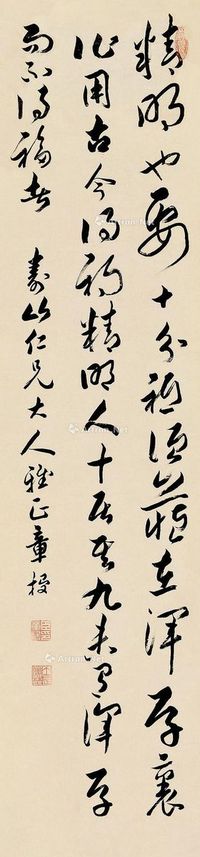 精明也要十分祗須藏在渾厚裏
作用古今得禍精明人十居其九未有渾厚
而不得福者 壽山仁兄大人雅正章梫